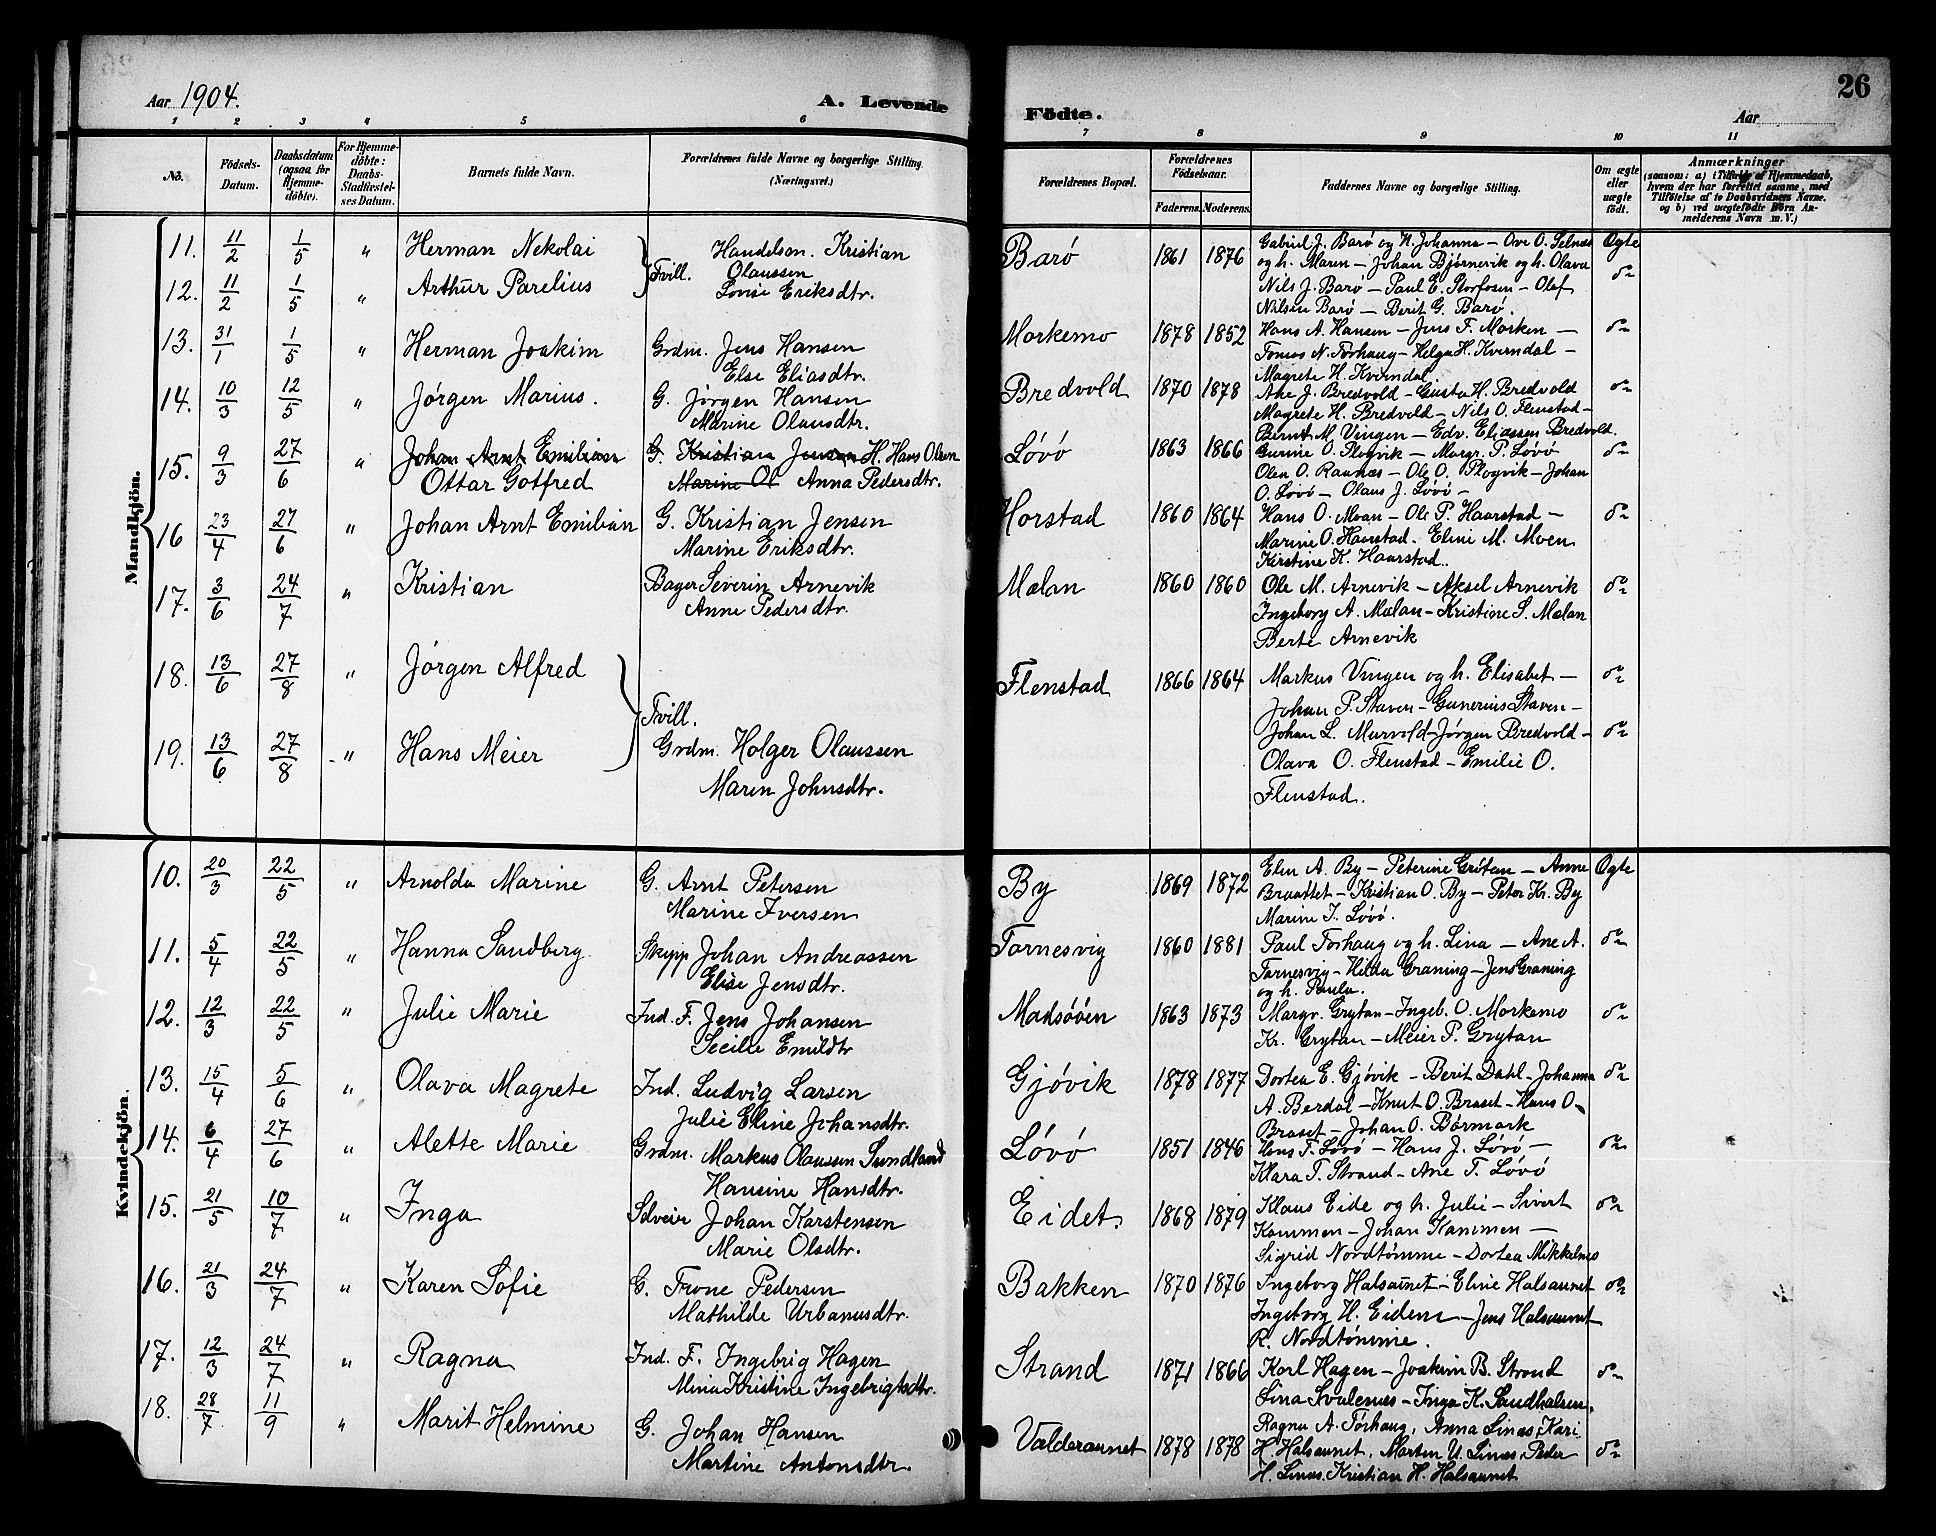 Aar 1904.
A. Levende
1 2 3 4 5 6
No.
Födsels-
Datum.
Daabsdatum
(ogsaa for
Hjemme-
döbte).
For Hjemme-
döbte:
Daabs-
Stadfæstel-
ses Datum.
Barnets fulde Navn.
Forældrenes fulde Navne og borgerlige Stilling.
(Næringsvei.)
Mandkjön.
11. 11/2 1/5 " Herman Nekolai
12. 11/2 1/5 " Arthur Parelius
Tvill.
Handelsm. Kristian
Olaussen
Lovise Eriksdtr.
13. 31/1 1/5 " Herman Joakim Grdm. Jens Hansen
Else Eliasdtr.
14. 10/3 12/5 " Jørgen Marius. G. Jørgen Hansen
Marine Olausdtr.
15. 9/3 27/6 " Johan Arnt Emilian G. Kristian Jensen H. Hans Olsen
Ottar Gotfred Marine Ol Anna Pedersdtr.
16 23/4 27/6 " Johan Arnt Emilian G. Kristian Jensen
Marine Eriksdtr.
17. 3/6 24/7 " Kristian Bager Severin Arnevik
Anne Pedersdtr.
18. 13/6 27/8 " Jørgen Alfred
Tvill.
19. 13/6 27/8 " Hans Meier Grdm. Holger Olaussen
Maren Johnsdtr.
Kvindekjön.
10. 20/3 22/5 " Arnolda Marine G. Arnt Petersen
Marine Iversen
11. 5/4 22/5 " Hanna Sandberg. Skipp Johan Andreassen
Elise Jensdtr.
12. 12/3 22/5 " Julie Marie Ind. F. Jens Johansen
Secilie Emildtr
13. 15/4 5/6 " Olava Magrete Ind. Ludvig Larsen
Julie Eline Johansdtr.
14. 6/4 27/6 " Alette Marie Grdm. Markus Olaussen Sundland
Hansine Hansdtr.
15. 21/5 10/7 " Inga Selveier Johan Karstensen
Marie Olsdtr.
16. 21/3 24/7 " Karen Sofie G. Trone Pedersen
Mathilde Urbanusdtr.
17. 12/3 24/7 " Ragna Ind. F. Ingebrig Hagen
Mina Kristine Ingebrigtsdtr.
18. 28/7 11/9 " Marit Helmine G. Johan Hansen
Martine Antonsdtr.
26
Födte.
Aar
7 8 9 10 11
Forældrenes Bopæl.
Forældrenes
Födselsaar.
Faderens. Moderens.
Faddernes Navne og borgerlige Stilling.
Om ægte
eller
uægte
födt.
Anmærkninger
(saasom: a) i Tilfælde af Hjemmedaab,
hvem der har forrettet samme, med
Tilföielse af to Daabsvidners Navne.
og b) ved uægtefödte Börn An-
melderens Navn m. V.)
Barø 1861 1876 Gabriel J. Barø og H. Johanna – Ove O. Selnes Ægte
og h. Maren – Johan Bjørnevik og h. Olava do
Nils J. Barø – Paul E. Storfosen – Olaf
Nilsen Barø – Berit G. Barø.
Morkemo 1878 1852 Hans A. Hansen – Jens F. Morken – do
Tomas N. Forhaug – Helga H. Kverndal –
Magrete H. Kverndal
Bredvold 1870 1878 Ane J. Bredvold – Gusta H. Bredvold do
Magrete H. Bredvold – Nils O. Flenstad –
Bernt M. Vingen – Edv. Eliassen Bredvold.
Løvø 1863 1866 Gurine O. Plogvik – Margr. P. Løvø do
Olea O. Raanæs – Ole O. Plogvik – Johan
O. Løvø – Olaus J. Løvø –
Horstad 1860 1864 Hans O. Moan – Ole P. Haarstad – do
Marine O. Haarstad. Eline M. Moen
Kirstine K. Haarstad.
Mælan 1860 1860 Ole M. Arnevik – Aksel Arnevik do
Ingeborg A. Mælan – Kristine S. Mælan
Berte Arnevik
Flenstad 1866 1864 Markus Vingen og h. Elisabet – do
Johan P. Staven – Gunerius Staven –
Johan L. Murvold – Jørgen Bredvold – do
Olava O. Flenstad – Emilie O.
Flenstad.
By 1869 1872 Elen A. By – Peterine Grøtan – Anne Ægte
Braattet – Kristian O. By – Peter Kr. By
Marine I. Løvø.
Tarnesvig 1860 1881 Paul Forhaug og h. Lina – Ane A. do
Tarnesvig – Hilda Graning – Jens Graning
og h. Paula.
Madsøøen 1863 1873 Margr. Grytan – Ingeb. O. Morkemo do
Kr. Grytan – Meier P. Grytan
Gjøvik 1878 1877 Dortea E. Gjøvik – Berit Dahl – Johanna do
A. Berdal – Knut O. Braset – Hans O.
Braset – Johan O. Børmark
Løvø 1851 1846 Hans T. Løvø – Hans J. Løvø – do
Klara T. Strand – Ane T. Løvø
Eidet. 1868 1879 Klaus Eide og h. Julie – Sivert do
Kammen – Johan Kammen –
Sigrid Nordtømme – Dortea Mikkelnes
Bakken 1870 1876 Ingeborg Halsaunet – Eline Halsaunet do
Ingeborg H. Eidem – Jens Halsaunet
R. Nordtømme.
Strand 1871 1866 Karl Hagen – Joakim B. Strand do
Lina Svalenes – Inga K. Sandhalsen,
Ragna A. Forhaug, Anna Linæs, Kari
Valderaunet 1878 1878 H. Halsaunet, Marten U. Linæs, Peder do
H. Linæs, Kristian H. Halsaunet